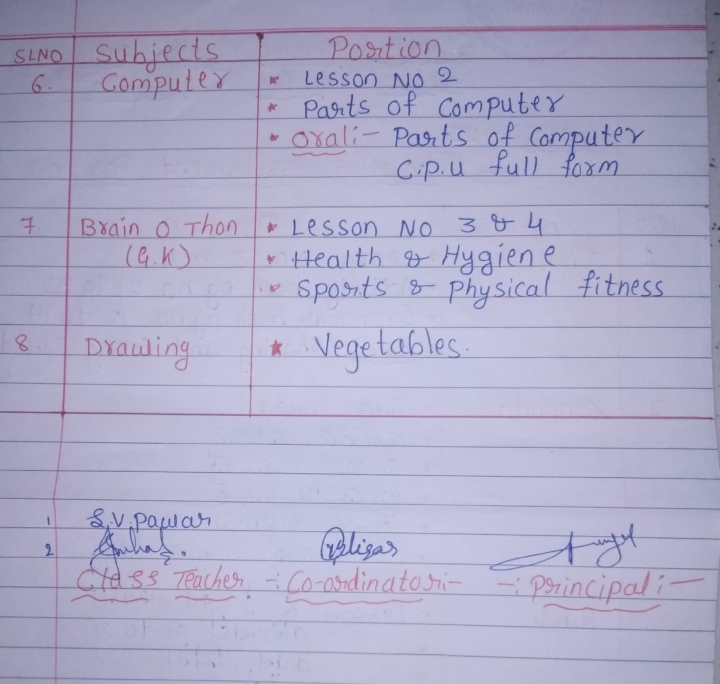 SLNO Subjects Portion
6. Computer * Lesson No 2
* Parts of Computer
* Oral:- Parts of Computer
C.P.U full form
7. Brain O Thon * Lesson No 3 & 4
(G.K) * Health & Hygiene
* Sports & Physical fitness
8. Drawing * Vegetables.
1 S.V.Pawar
2
Class Teacher -: Co-ordinator:- -: Principal:-